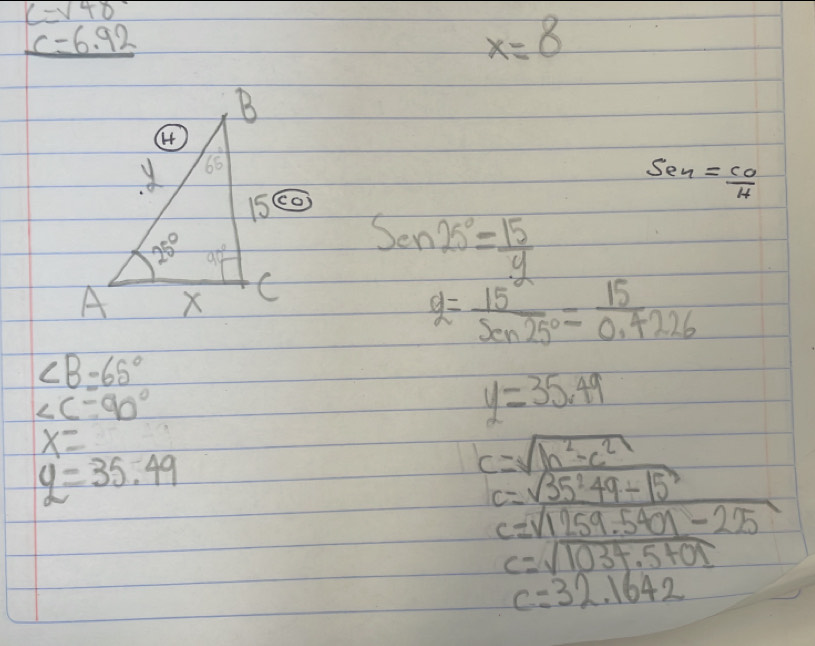 c=√48
c=6.92
x=8
B
H
65°
y
15 co
Sen = co/H
25°
90°
A
x
C
Sen 25° = 15/y
y = 15/Sen 25° = 15/0.4226
<B=65°
<C=90°
x=
y=35.49
y=35.49
c=√h²-c²
c=√35²49-15²
c=√1259.5401-225
c=√1034.5401
c=32.1642